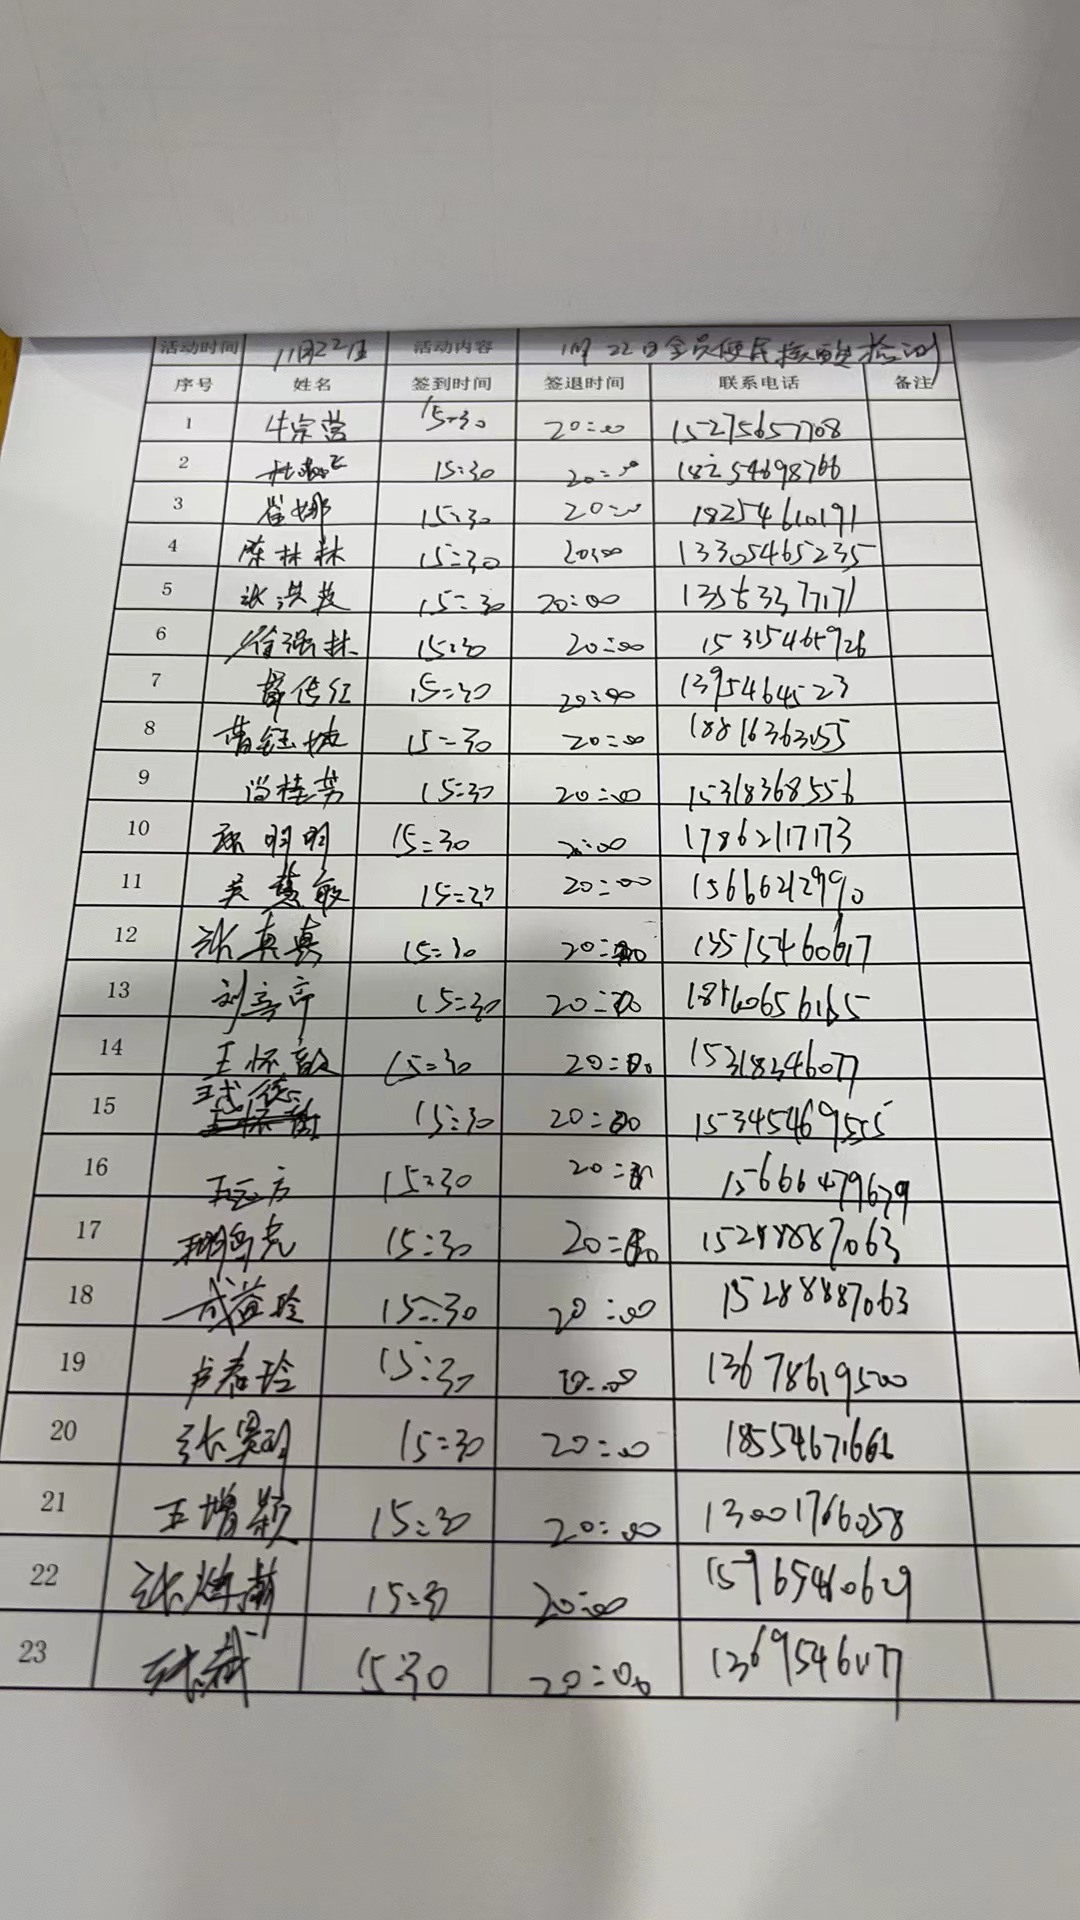 活动时间 11月22日 活动内容 11月22日全员便民核酸检测
序号 姓名 签到时间 签退时间 联系电话 备注
1 牛宗营 15:30 20:00 15275657708
2 15:30 20:00 18254698766
3 崔娜 15:30 20:00 18254610191
4 陈林林 15:30 20:00 13305465235
5 张洪波 15:30 20:00 13563377171
6 徐强林 15:30 20:00 15315465926
7 传红 15:30 20:00 13954645 23
8 曹钰婕 15:30 20:00
9 尚桂芳 15:30 20:00 15318368556
10 明明 15:30 20:00 17862117173
11 吴慧敏 15:30 20:00 15666242990
12 张真真 15:30 20:00 13515460617
13 刘 15:30 20:00
14 王怀敏 15:30 20:00 15318346077
15 15:30 20:00 15345469555
16 15:30 20:00 15666479679
17 15:30 20:00 15288887063
18 成益玲 15:30 20:00 15288887063
19 卢春玲 15:30 20:00 13678619500
20 张 15:30 20:00 18554671666
21 王增颖 15:30 20:00 13001766058
22 张 15:30 20:00 15965460629
23 15:30 20:00